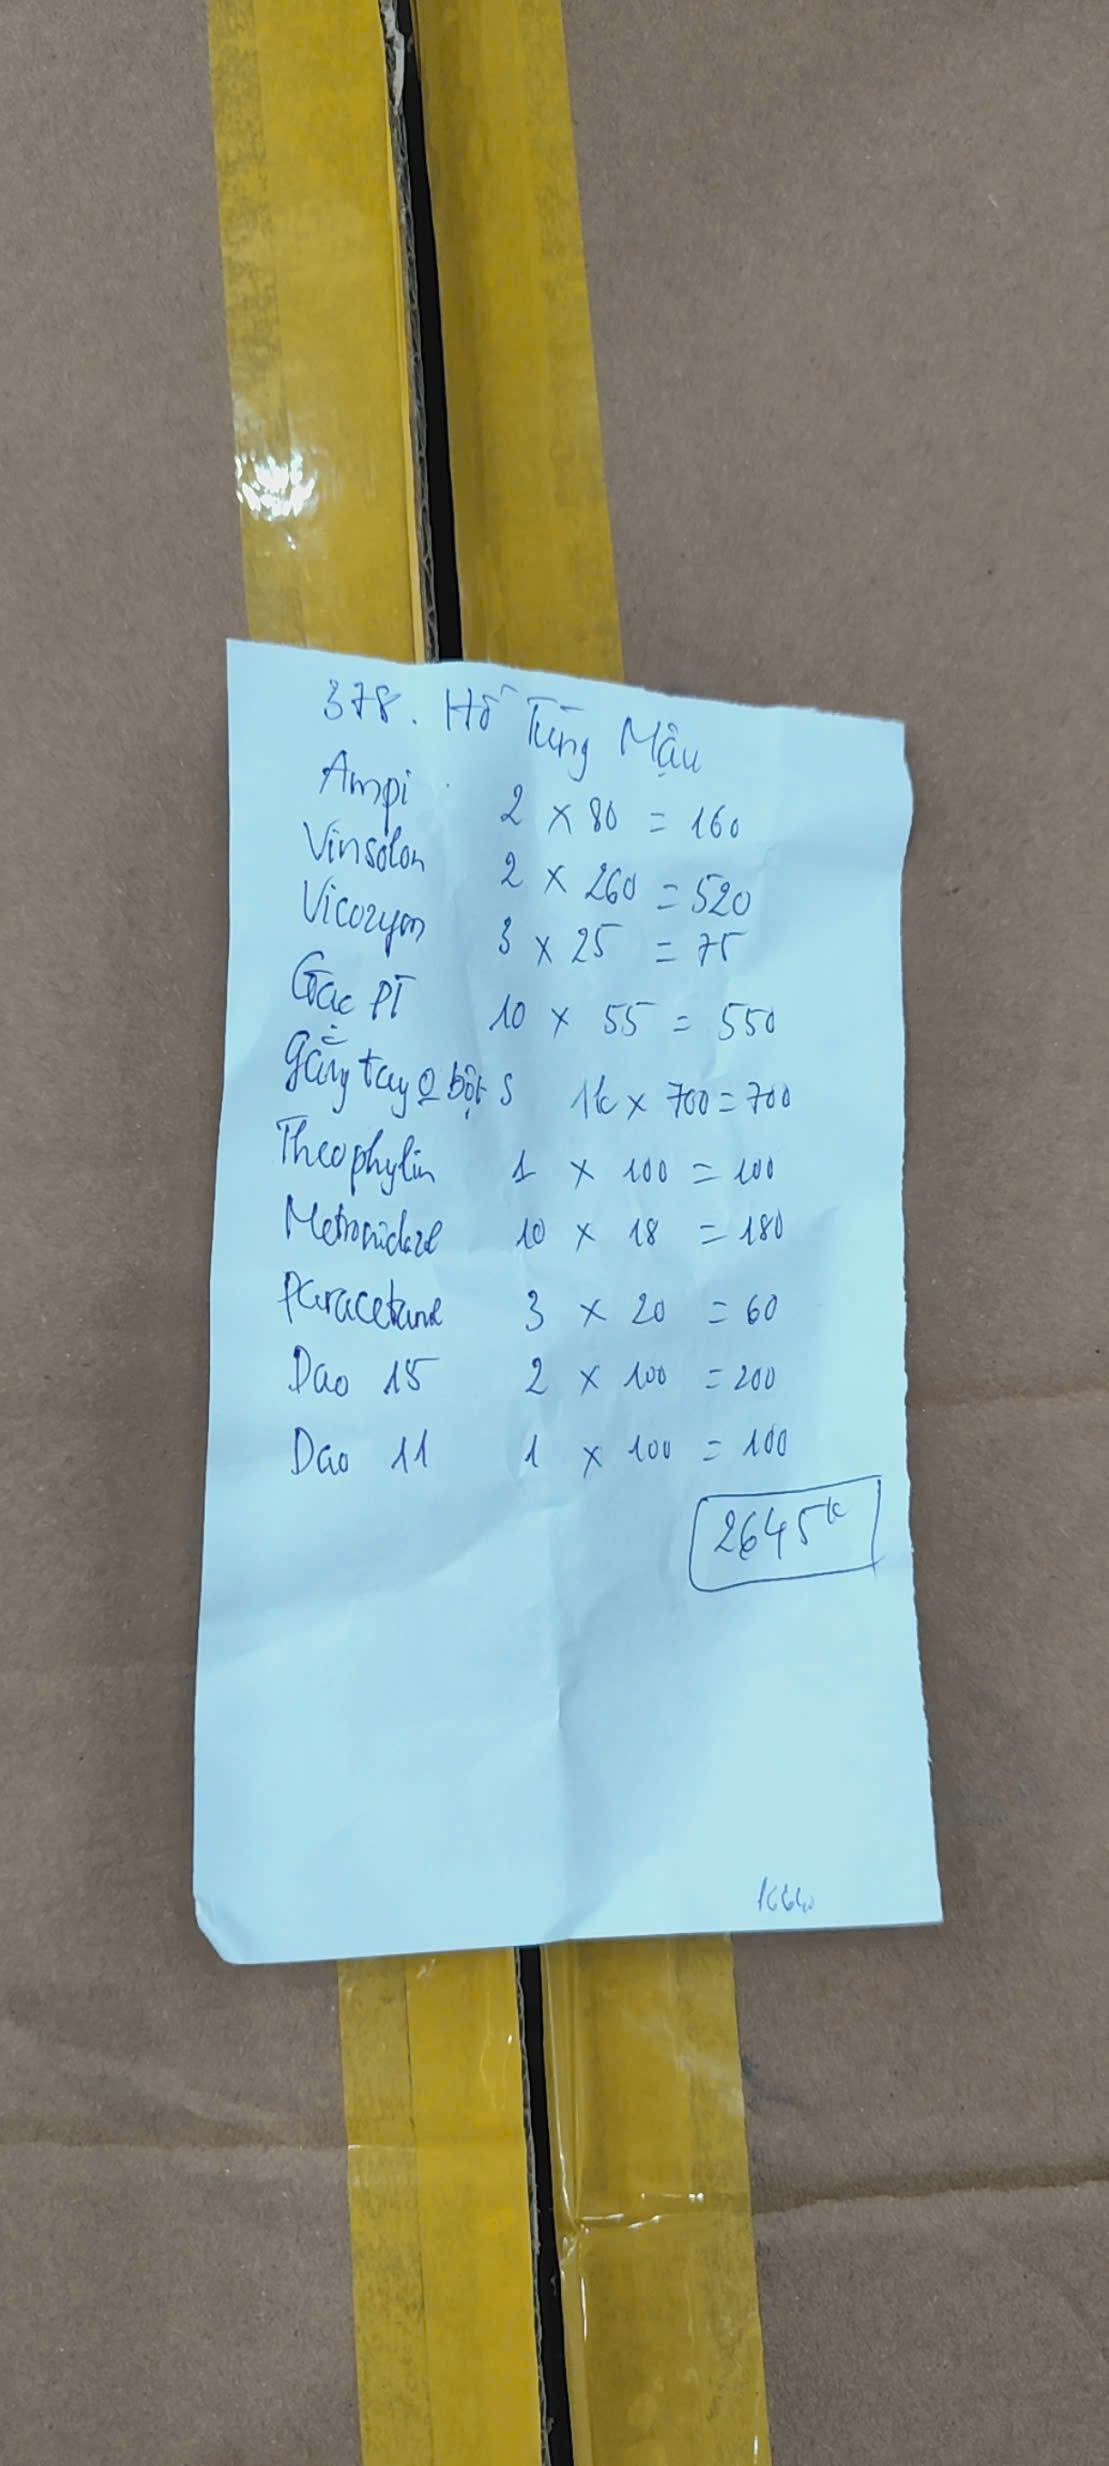 378. Hồ Tùng Mậu
Ampi 2 x 80 = 160
Vinsolon 2 x 260 = 520
Vicozym 3 x 25 = 75
Gạc PT 10 x 55 = 550
Găng tay bột S 1k x 700 = 700
Theophylin 1 x 100 = 100
Metronidazol 10 x 18 = 180
Paracetamol 3 x 20 = 60
Dao 15 2 x 100 = 200
Dao 11 1 x 100 = 100
2645k